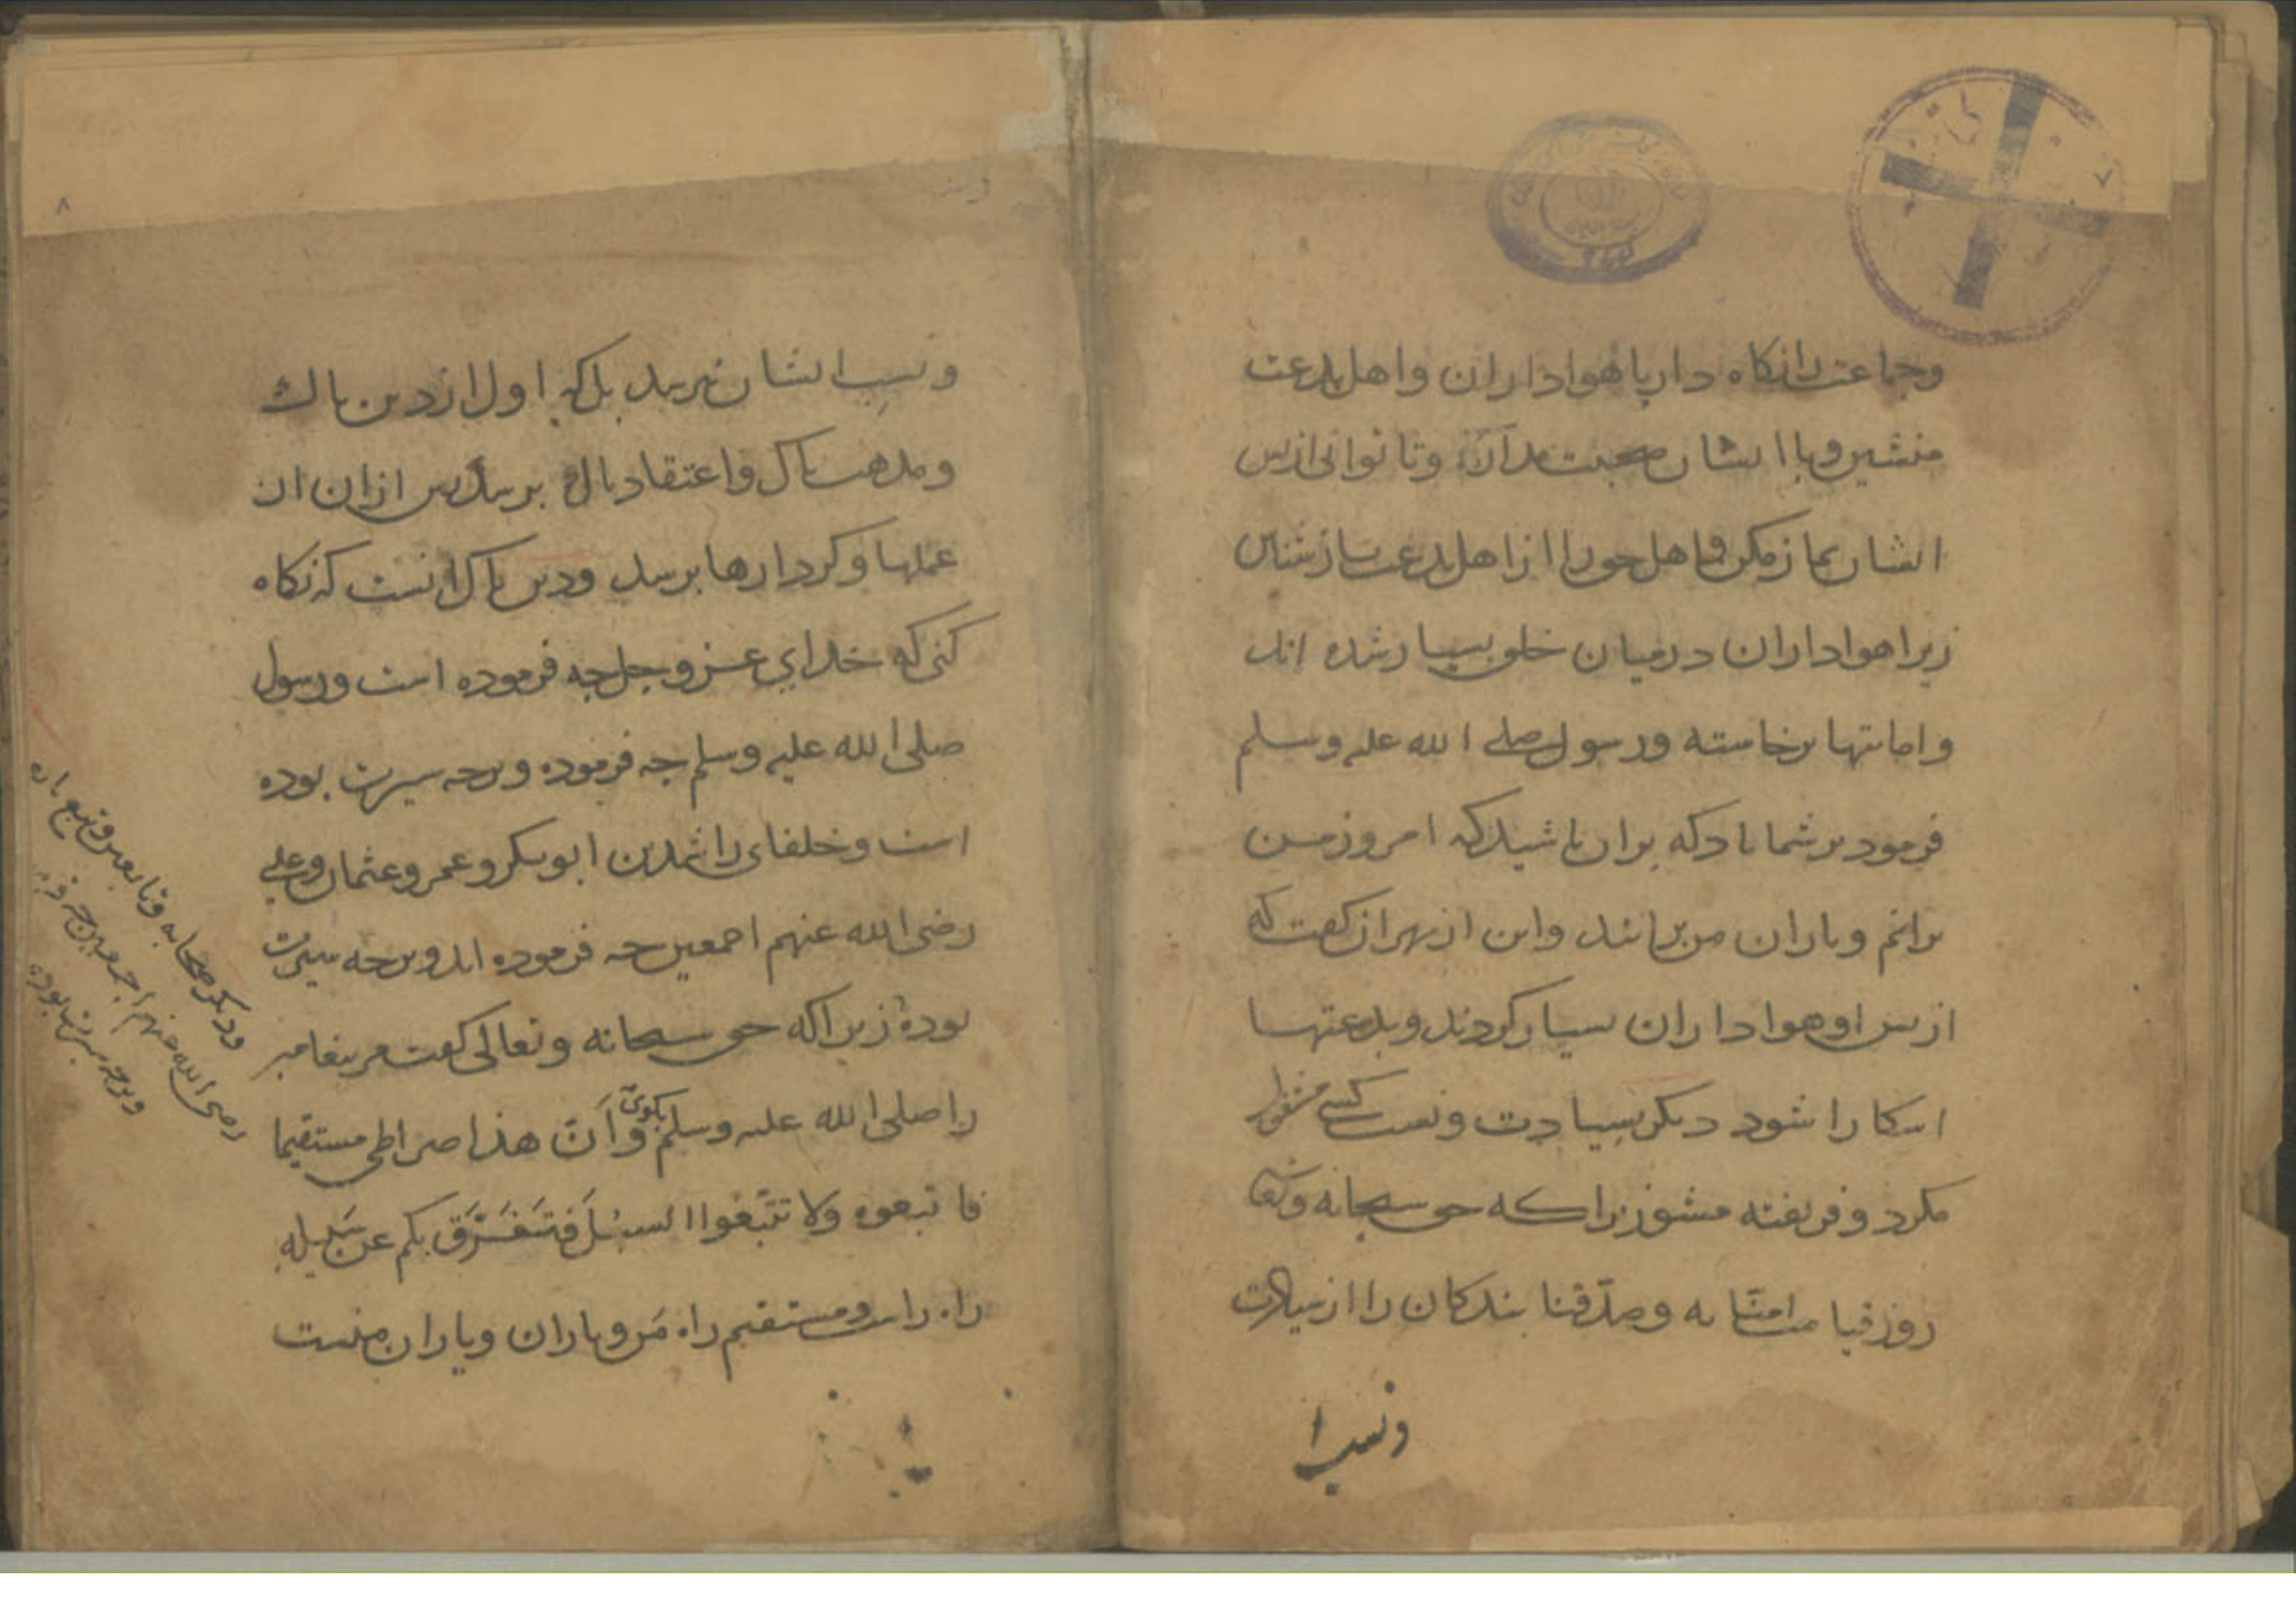 وجماعت را نکاه دار با هواداران واهل بدعت
منشین وبا ایشان صحبت مدار وتا توانی از پس
ایشان نماز مکن واهل حق را از اهل بدعت باز شناس
زیرا هواداران درمیان خلق بسیار شده اند
وامامتها برخاسته ورسول صلی الله علیه وسلم
فرمود بر شما باد که بران باشید که امروز من
برانم ویاران من برانند واین از بهر ان کفت که
از پس او هواداران بسیار کردند وبدعتها
اشکارا شود دیکر بسیادت ونسب کسی مغرور
مکرد وفریفته مشو زیرا که حق سبحانه وتعالی
روز قیامت امنا به وصدقنا بندکان را از سیادت
ونسب را
ونسب ایشان نپرسد بل که اول از دین پاک
ومذهب پاک واعتقاد پاک پرسد پس از ان از
عملها وکردارها پرسد ودین پاک انست که نکاه
کنی که خدای عز وجل چه فرموده است ورسول
صلی الله علیه وسلم چه فرموده وبرچه سیرت بوده
است وخلفای راشدین ابوبکر وعمر وعثمان وعلی
رضی الله عنهم اجمعین چه فرموده اند وبرچه سیرت
بوده زیرا که حق سبحانه وتعالی کفت مر پیغامبر
را صلی الله علیه وسلم بکوی وَاَنّ هذا صراطی مستقیما
فاتبعوه ولا تتَّبعوا السبُلَ فَتَفَرَّقَ بکم عن سَبیلِهِ
راه راست ومستقیم راه مَن ویاران ویاران منست
ودیکر صحابه وتابعین وتبع
رضی الله عنهم اجمعین چه
وبرچه سیرت بوده
۸